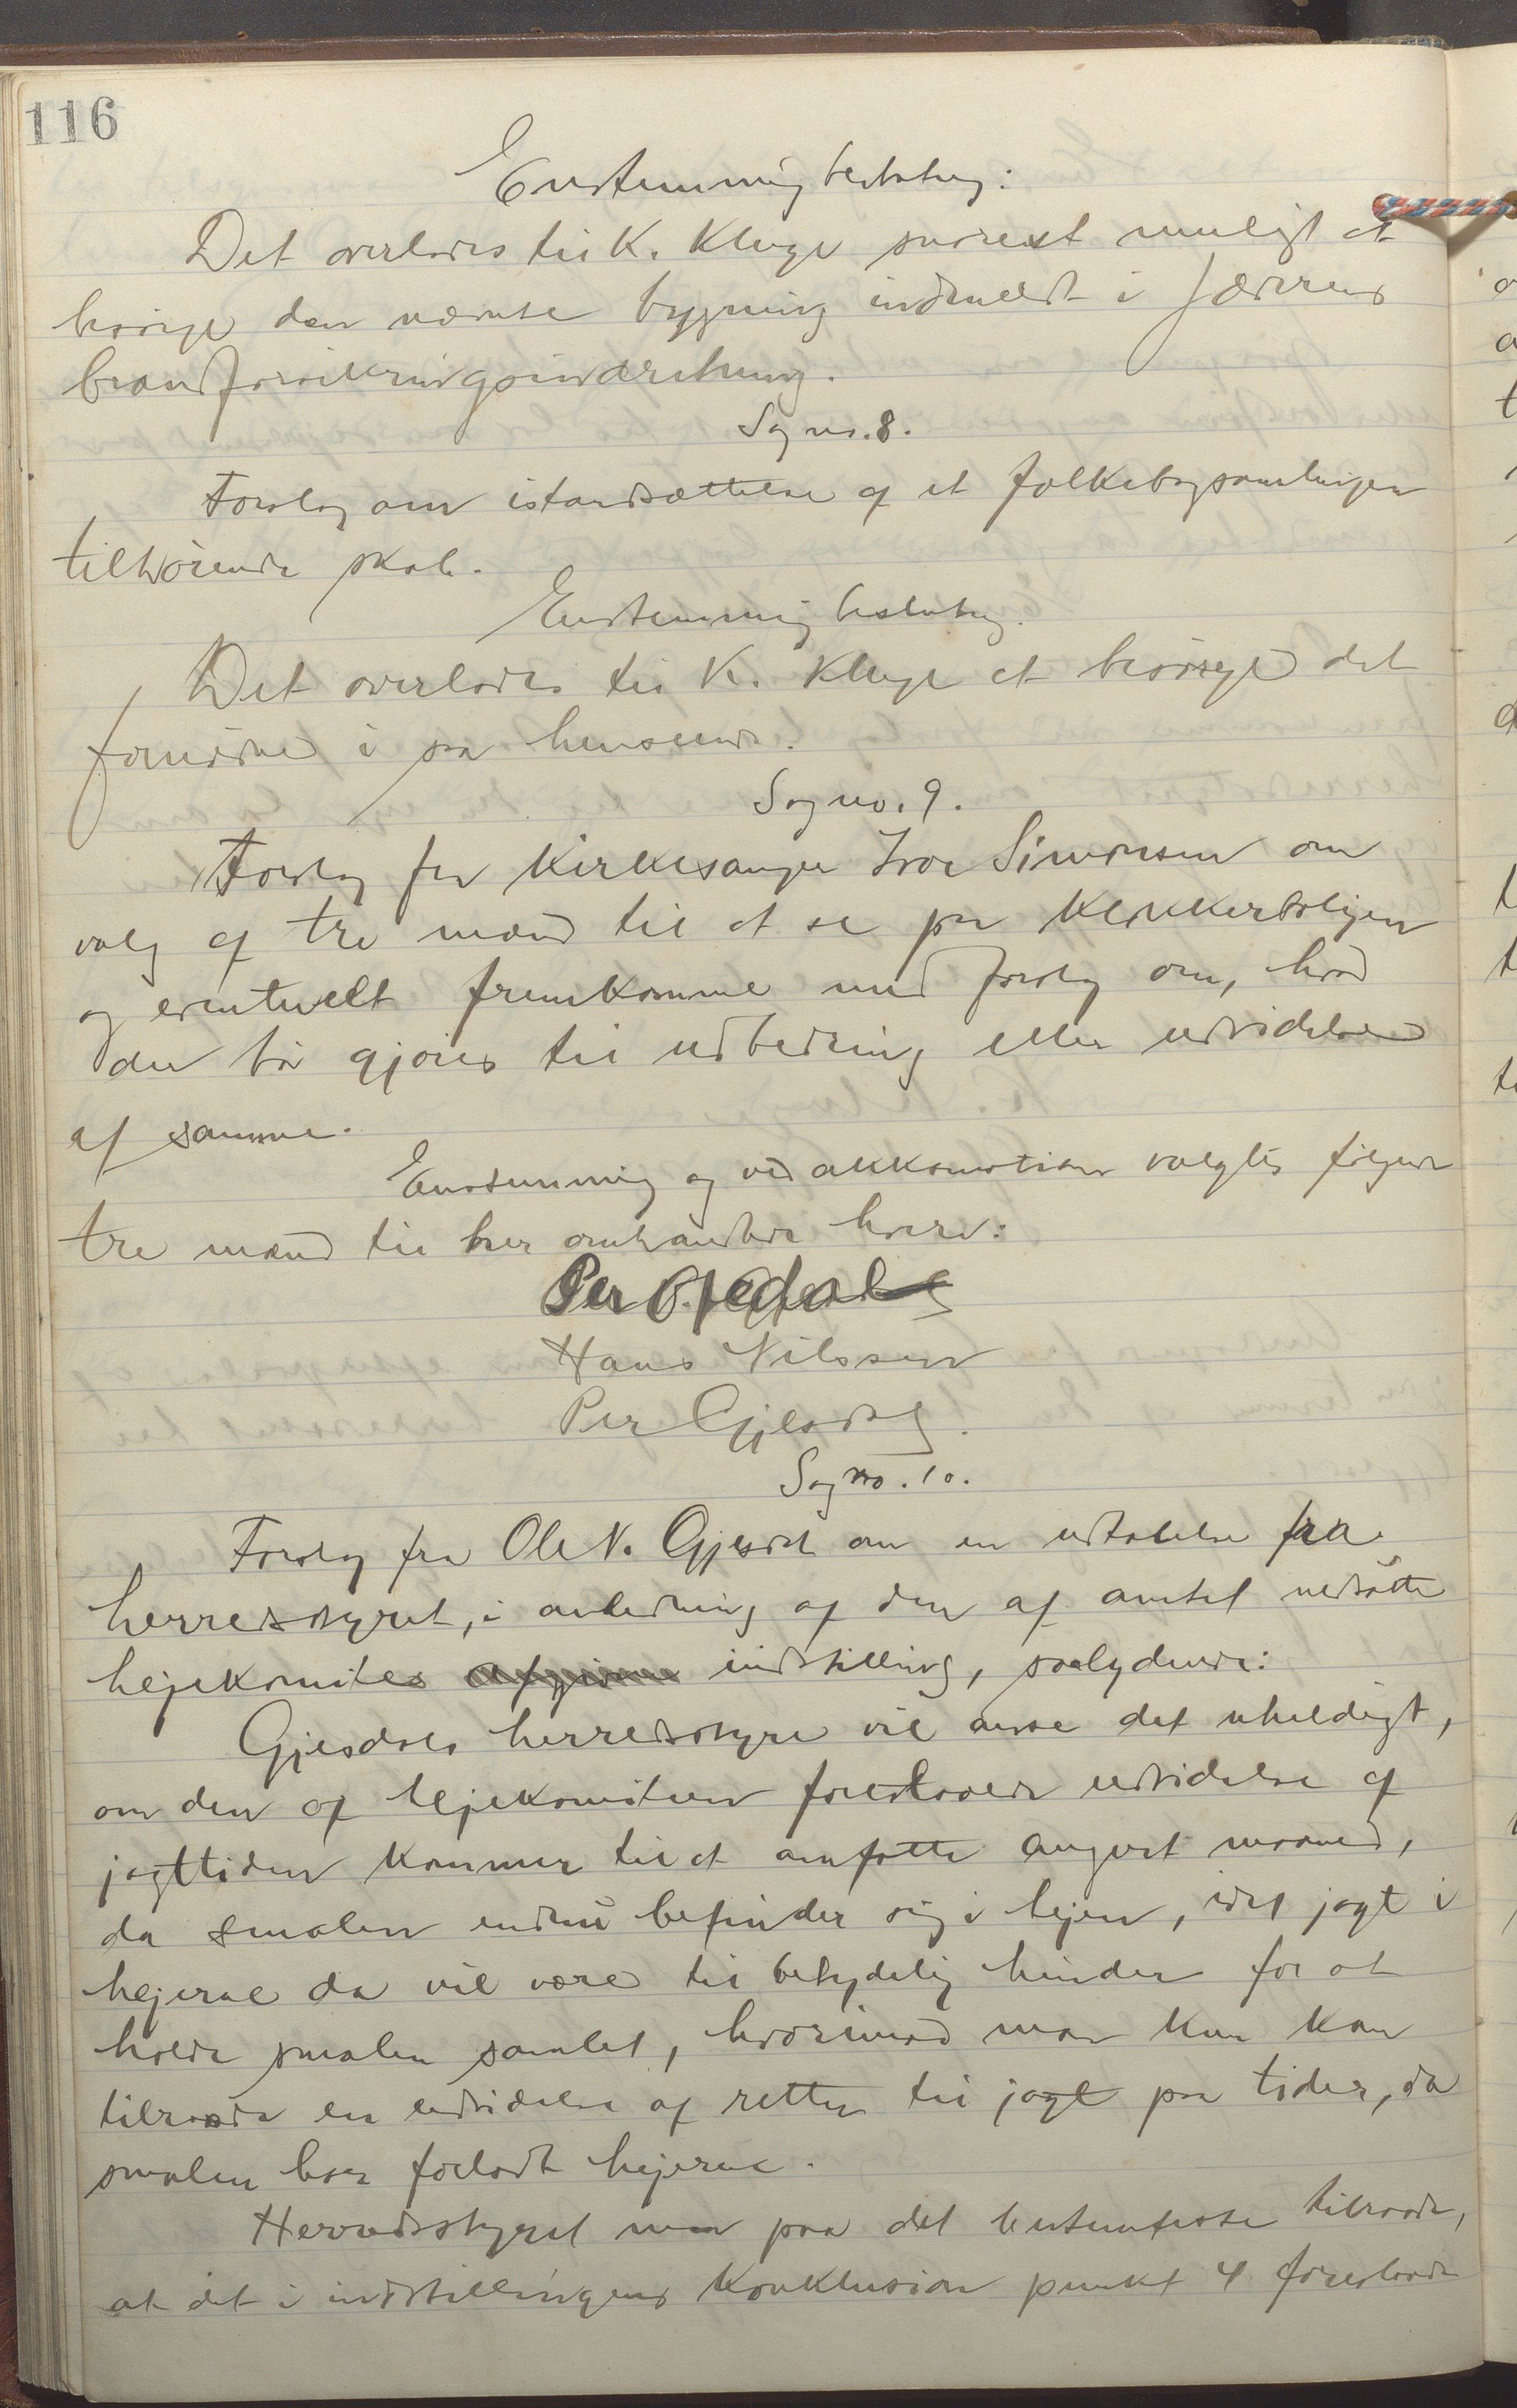 116
Enstemmig beslutning:
Det overlades til K. Kluge snarest muligt at
besørge den nævnte bygning indmeldt i Jæderens
brandforsikringsindretning.
Sag no. 8.
Forslag om istandsættelse af et folkebogsamlingen
tilhørende skab.
Enstemmig beslutning.
Det overlades til K. Kluge at besørge det
fornødne i saa henseende.
Sag no. 9.
Forslag fra kirkesanger Ivar Simonsen om
valg af tre mænd til at se paa klokkerboligen
og eventuelt fremkomme med forslag om, hvad
der bør gjøres til udbedring eller udvidelse
af samme.
Enstemmig og ved akklamation valgtes følgende
tre mænd til her omhandlede hverv:
Per
Hans Nilssen
Per Gjesdal.
Sag no. 10.
Forslag fra Ole N. Gjesdal om en udtalelse fra
herredsstyret, i anledning af den af amtet nedsatte
hejekomites indstilling, saalydende:
Gjesdals herredsstyre vil anse det uheldigt,
om den af hejekomiteen foreslaaede udvidelse af
jagttiden kommer til at omfatte august maaned,
da smalen endnu befinder sig i hejen, idet jagt i
hejerne da vil være til betydelig hinder for at
holde smalen samlet, hvorimod man kun kan
tilraade en udvidelse af retten til jagt paa tider, da
smalen har forladt hejerne.
Herredsstyret maa paa det bestemteste tilraade,
at det i indstillingens konklusion punkt 4 foreslaaede